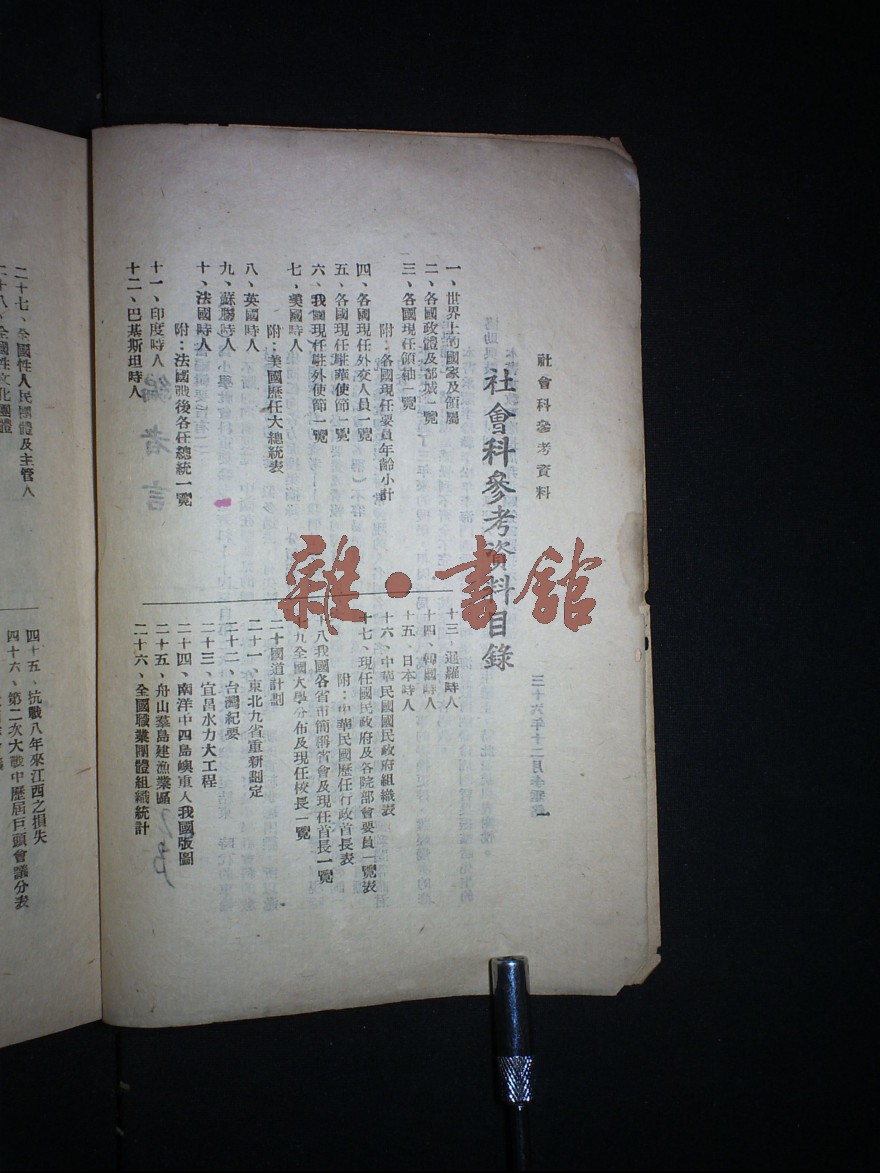 社會科參考資料
社會科參考資料目錄
三十六年十二月
一
一、世界上的國家及領屬
二、各國政體及都城一覽
三、各國現任領袖一覽
附：各國現任要員年齡小計
四、各國現任外交人員一覽
五、各國現任駐華使節一覽
六、我國現任駐外使節一覽
七、美國時人
附：美國歷任大總統表
八、英國時人
九、蘇聯時人
十、法國時人
附：法國戰後各任總統一覽
十一、印度時人
十二、巴基斯坦時人
十三、暹羅時人
十四、韓國時人
十五、日本時人
十六、中華民國國民政府組織表
十七、現任國民政府及各院部會要員一覽表
附：中華民國歷任行政首長表
十八我國各省市簡稱省會及現任首長一覽
十九全國大學分布及現任校長一覽
二十國道計劃
二十一、東北九省重新劃定
二十二、台灣紀要
二十三、宜昌水力大工程
二十四、南洋中四島嶼重入我國版圖
二十五、舟山羣島建漁業區
二十六、全國職業團體組織統計
二十七、全國性人民團體及主管人
二十八、全國性文化團體
四十五、抗戰八年來江西之損失
四十六、第二次大戰中歷屆巨頭會議分表
雜·書館
編者言